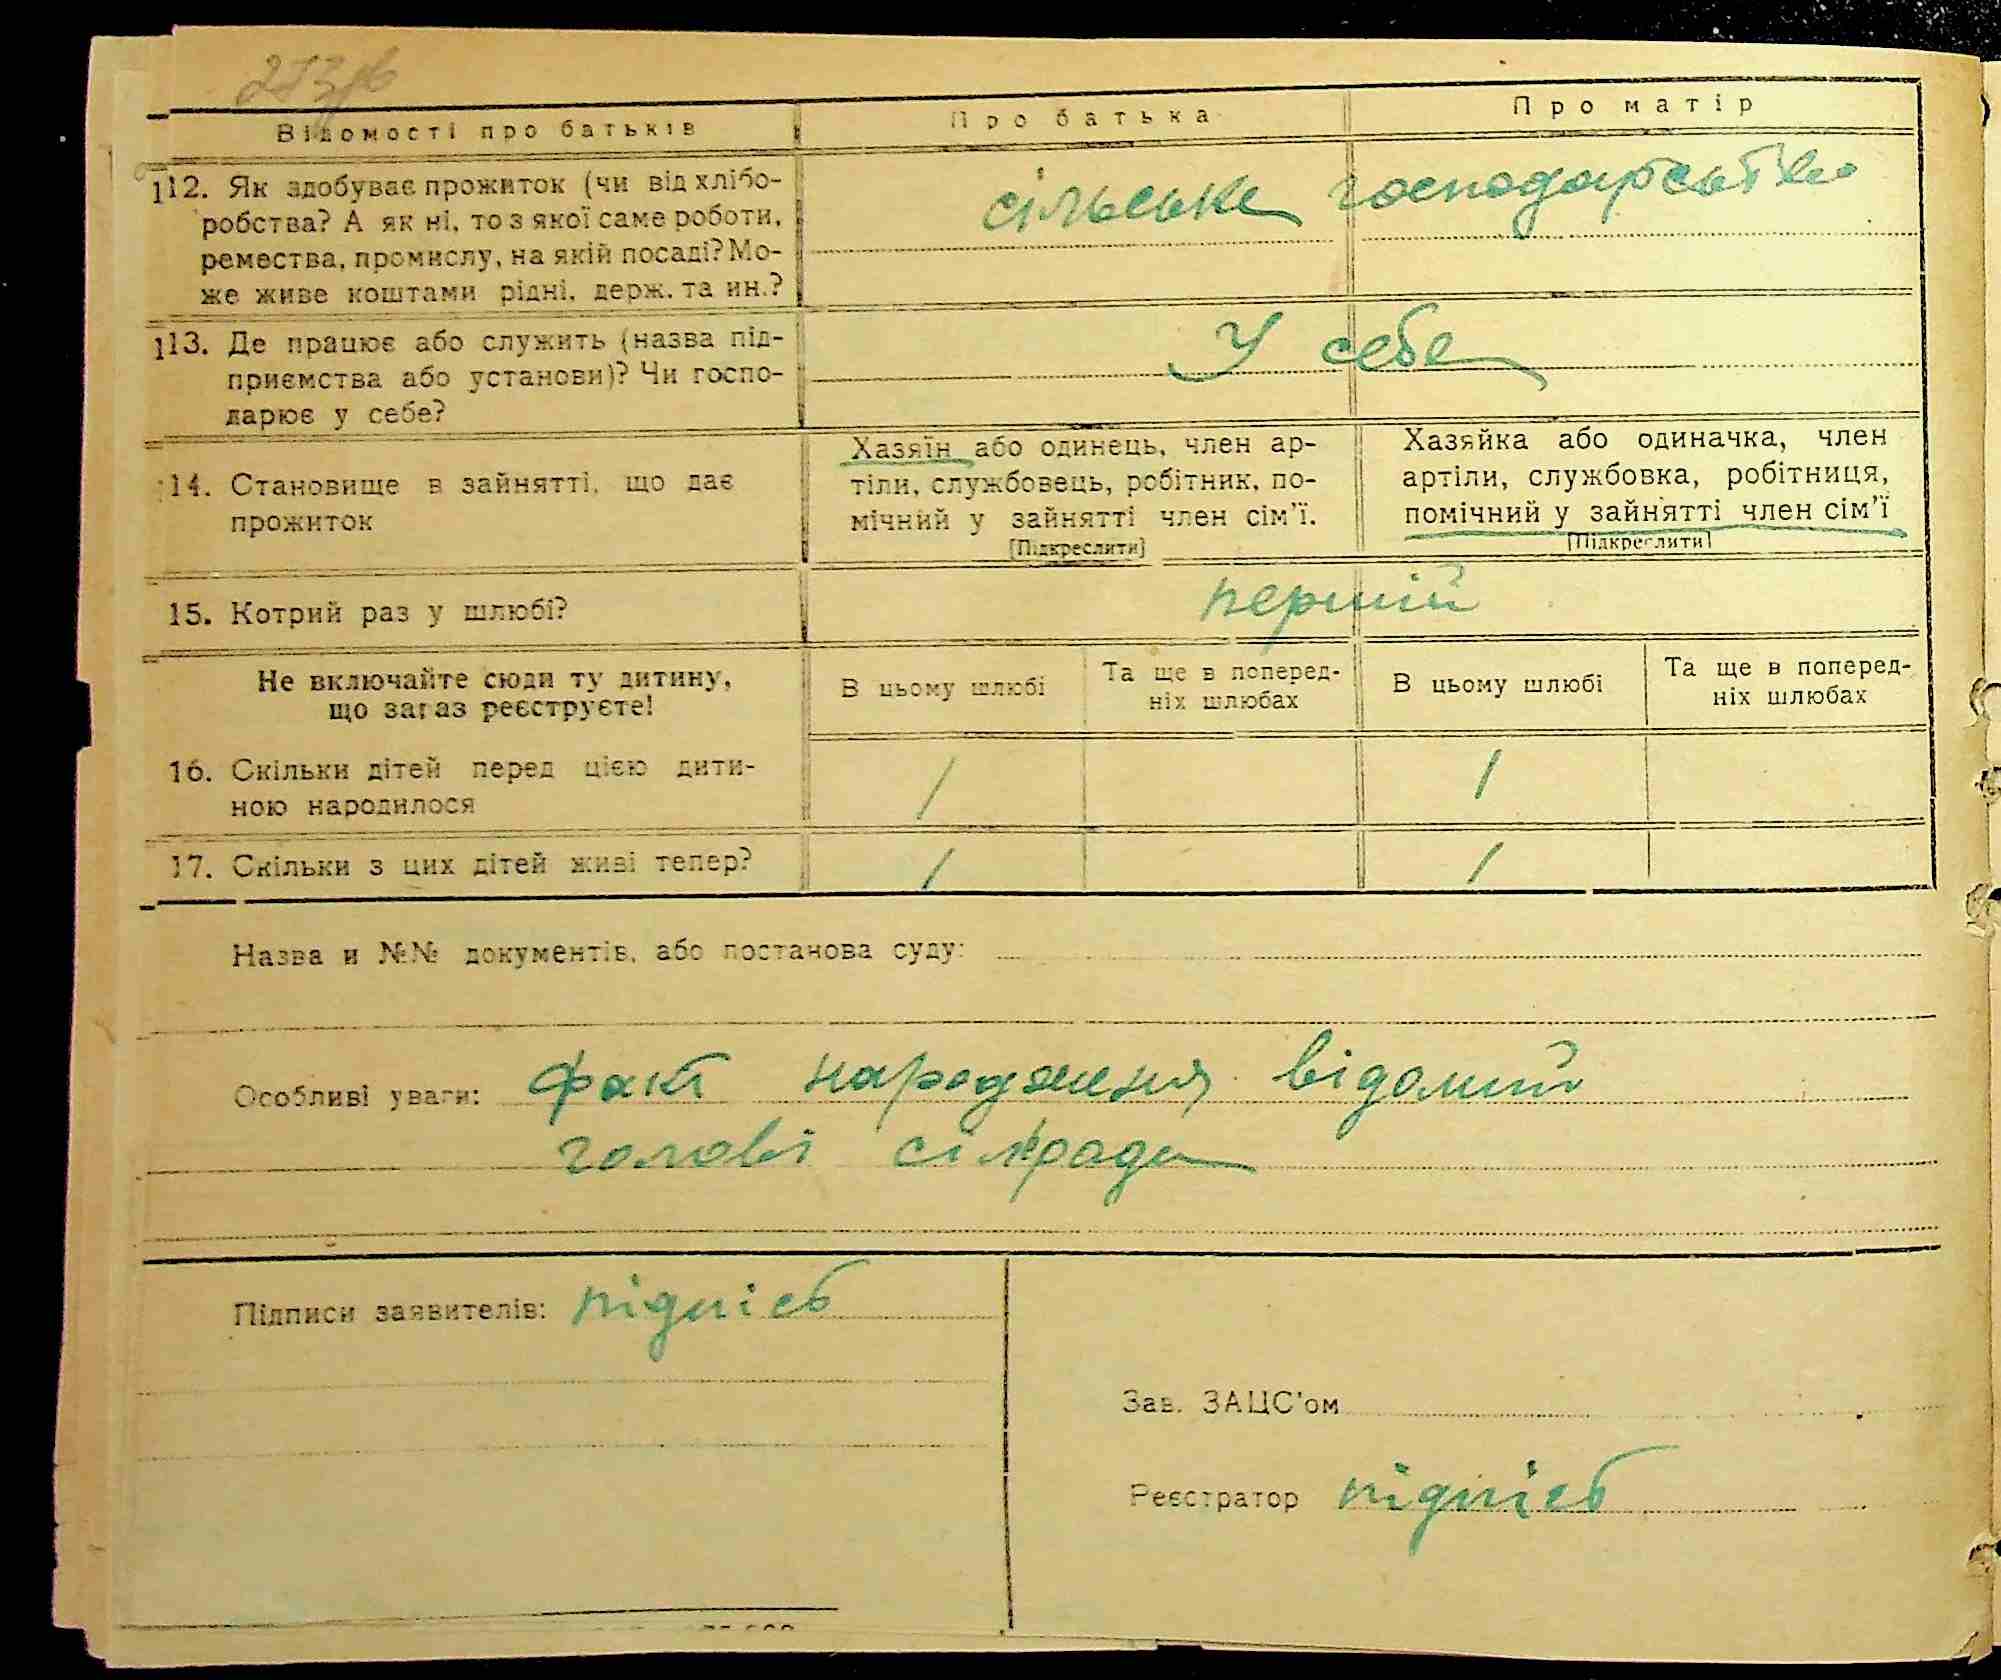 273зв
Відомості про батьків Про батька Про матір
12. Як здобуває прожиток (чи від хлібо-
робства? А як ні, то з якої саме роботи,
ремества, промислу, на якій посаді? Мо-
же живе коштами рідні, держ. та ин.?
сільське господарство
13. Де працює або служить (назва під-
приємства або установи)? Чи госпо-
дарює у себе?
У себе
14. Становище в зайнятті, що дає
прожиток
Хазяїн або одинець, член ар-
тіли, службовець, робітник, по-
мічний у зайнятті член сім'ї.
[Підкреслити]
Хазяйка або одиначка, член
артіли, службовка, робітниця,
помічний у зайнятті член сім'ї
[Підкреслити]
15. Котрий раз у шлюбі? першій
Не включайте сюди ту дитину,
що зараз реєструєте!
В цьому шлюбі
Та ще в поперед-
ніх шлюбах
В цьому шлюбі
Та ще в поперед-
ніх шлюбах
16. Скільки дітей перед цією дити-
ною народилося
1 1
17. Скільки з цих дітей живі тепер? 1 1
Назва и №№ документів, або постанова суду:
Особливі уваги: факт народження відомий
голові сілради
Підписи заявителів: підпісь
Зав. ЗАЦС'ом
Реєстратор підпісь